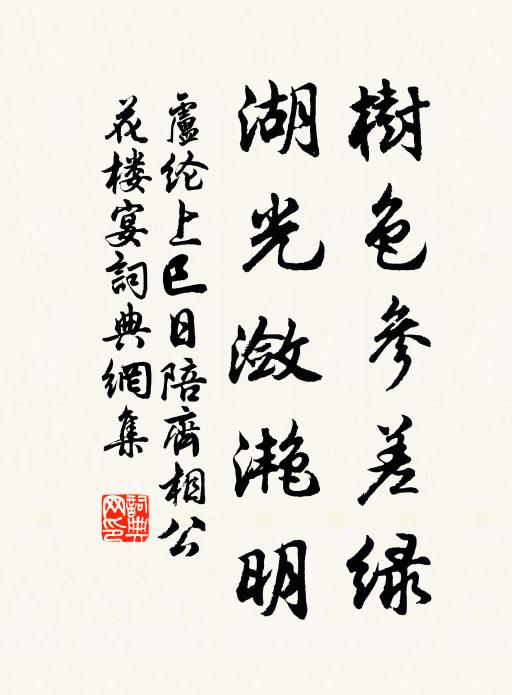 樹色參差綠
湖光瀲灔明
盧纶上巳日陪齊相公
花楼宴詞典網集
詞典
网印